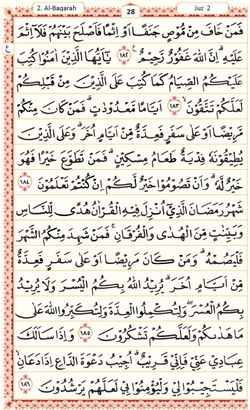 2. Al-Baqarah 28 Juz 2
فَمَنْ خَافَ مِنْ مُّوْصٍ جَنَفًا اَوْ اِثْمًا فَاَصْلَحَ بَيْنَهُمْ فَلَآ اِثْمَ
عَلَيْهِ ۗ اِنَّ اللّٰهَ غَفُوْرٌ رَّحِيْمٌ ࣖ ١٨٢ يٰٓاَيُّهَا الَّذِيْنَ اٰمَنُوْا كُتِبَ
عَلَيْكُمُ الصِّيَامُ كَمَا كُتِبَ عَلَى الَّذِيْنَ مِنْ قَبْلِكُمْ
لَعَلَّكُمْ تَتَّقُوْنَ ۙ ١٨٣ اَيَّامًا مَّعْدُوْدٰتٍ ۗ فَمَنْ كَانَ مِنْكُمْ
مَّرِيْضًا اَوْ عَلٰى سَفَرٍ فَعِدَّةٌ مِّنْ اَيَّامٍ اُخَرَ ۗ وَعَلَى الَّذِيْنَ
يُطِيْقُوْنَهٗ فِدْيَةٌ طَعَامُ مِسْكِيْنٍ ۗ فَمَنْ تَطَوَّعَ خَيْرًا فَهُوَ
خَيْرٌ لَّهٗ ۗ وَاَنْ تَصُوْمُوْا خَيْرٌ لَّكُمْ اِنْ كُنْتُمْ تَعْلَمُوْنَ ١٨٤
شَهْرُ رَمَضَانَ الَّذِيْٓ اُنْزِلَ فِيْهِ الْقُرْاٰنُ هُدًى لِّلنَّاسِ
وَبَيِّنٰتٍ مِّنَ الْهُدٰى وَالْفُرْقَانِ ۚ فَمَنْ شَهِدَ مِنْكُمُ الشَّهْرَ
فَلْيَصُمْهُ ۗ وَمَنْ كَانَ مَرِيْضًا اَوْ عَلٰى سَفَرٍ فَعِدَّةٌ
مِّنْ اَيَّامٍ اُخَرَ ۗ يُرِيْدُ اللّٰهُ بِكُمُ الْيُسْرَ وَلَا يُرِيْدُ
بِكُمُ الْعُسْرَ ۖ وَلِتُكْمِلُوا الْعِدَّةَ وَلِتُكَبِّرُوا اللّٰهَ عَلٰى
مَا هَدٰىكُمْ وَلَعَلَّكُمْ تَشْكُرُوْنَ ١٨٥ وَاِذَا سَاَلَكَ
عِبَادِيْ عَنِّيْ فَاِنِّيْ قَرِيْبٌ ۗ اُجِيْبُ دَعْوَةَ الدَّاعِ اِذَا دَعَانِ ۙ
فَلْيَسْتَجِيْبُوْا لِيْ وَلْيُؤْمِنُوْا بِيْ لَعَلَّهُمْ يَرْشُدُوْنَ ١٨٦